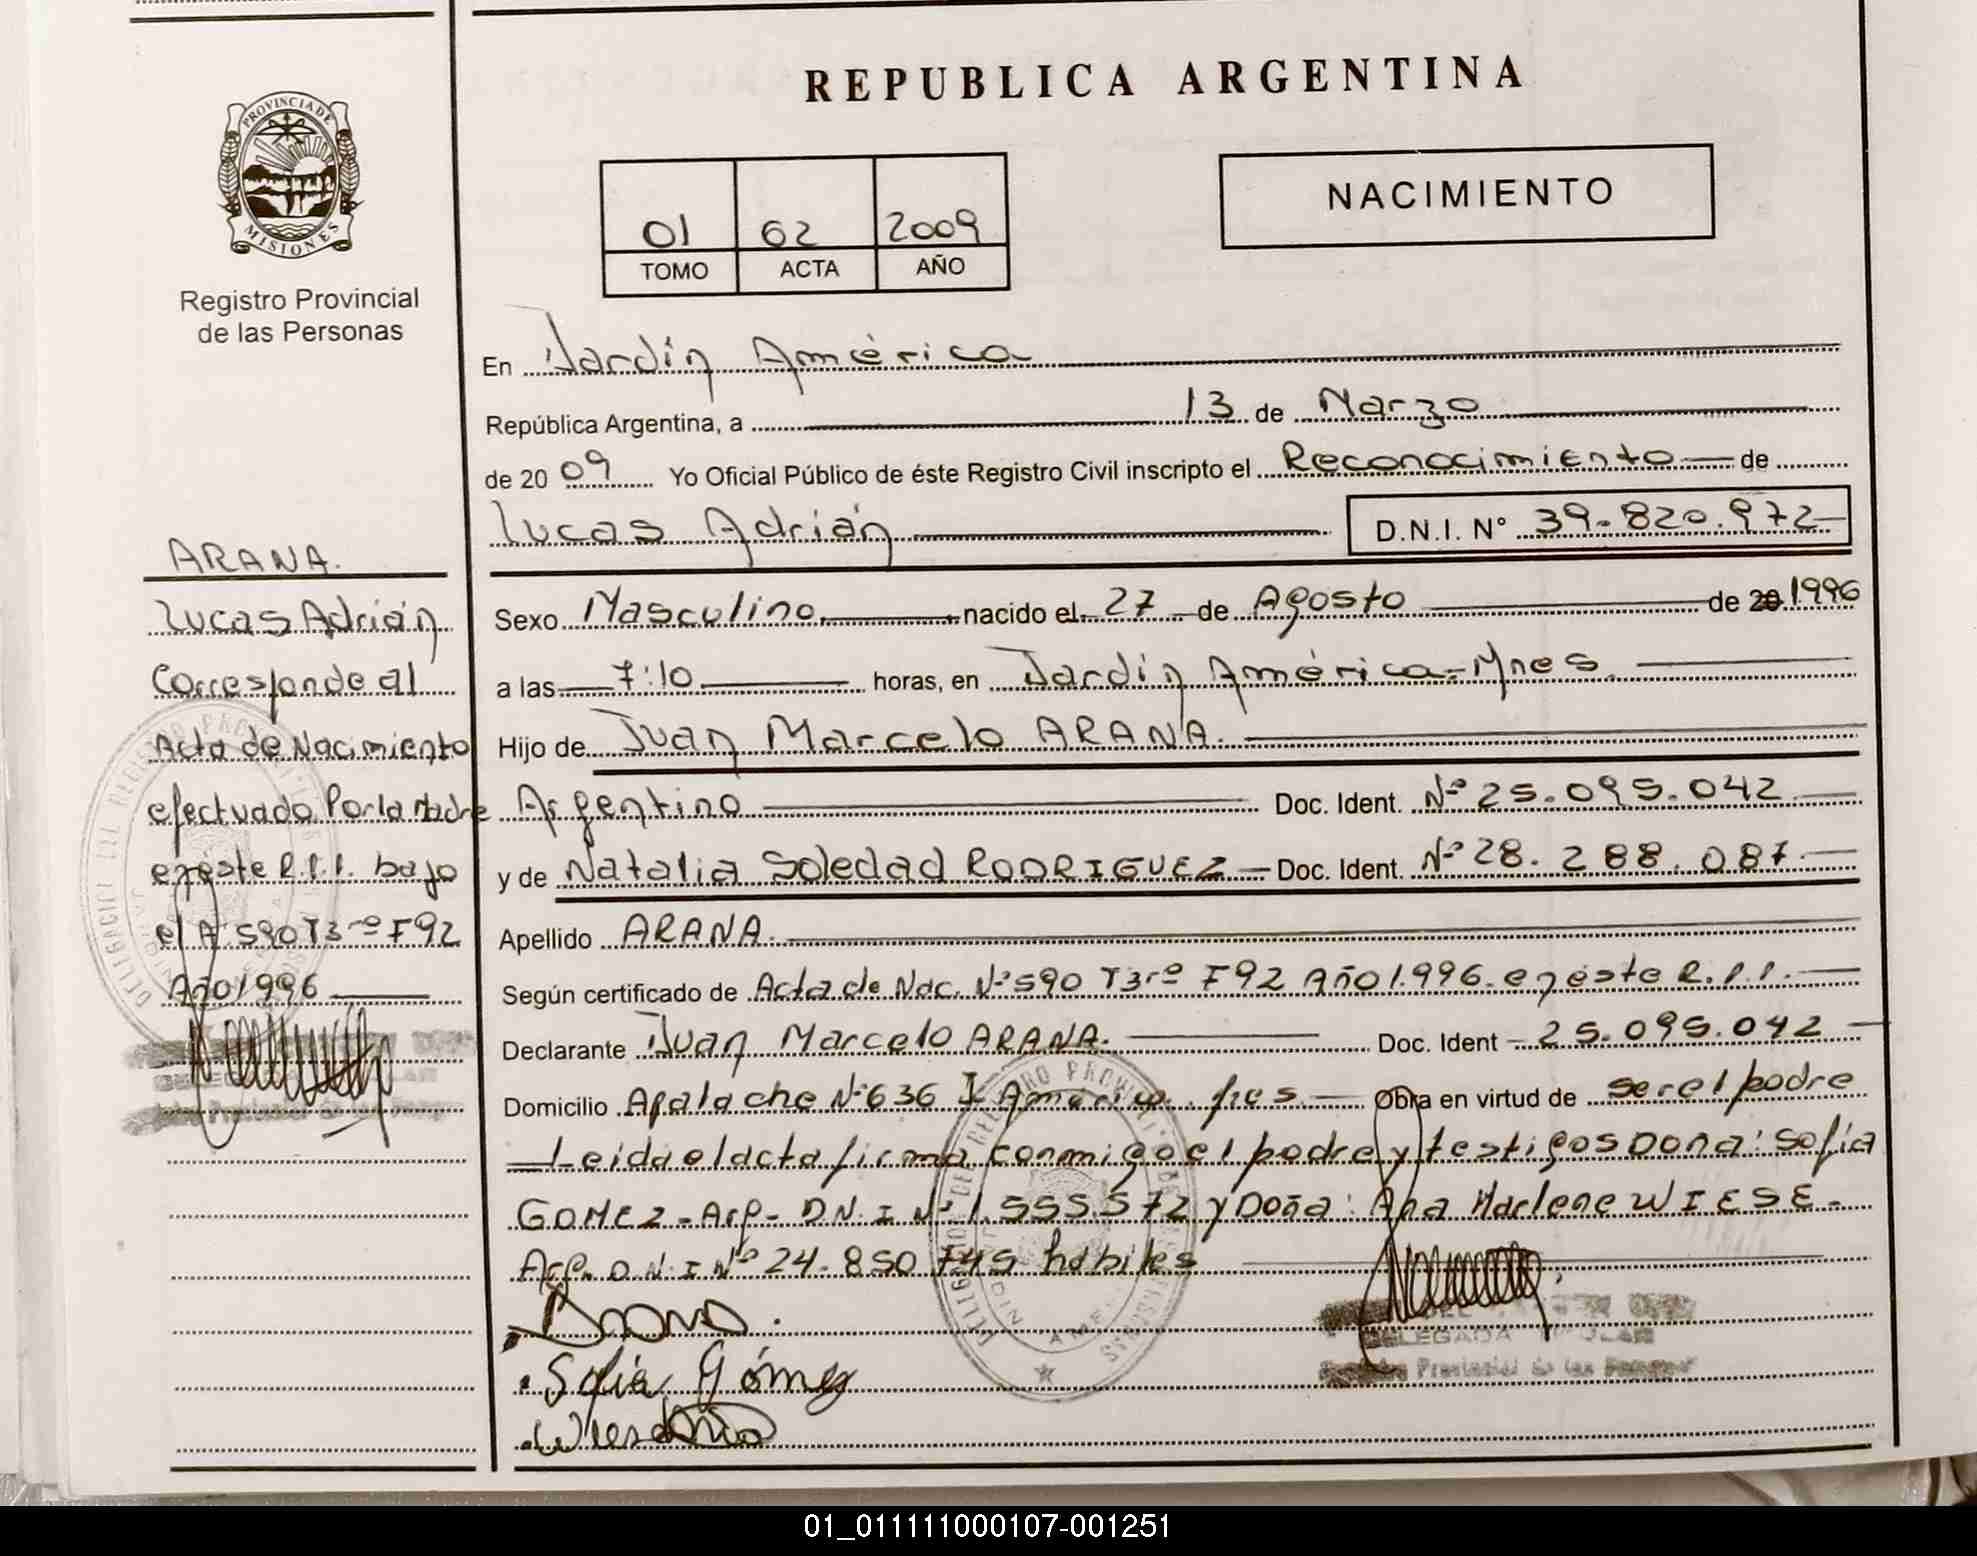 REPUBLICA ARGENTINA
PROVINCIA DE
MISIONES
Registro Provincial
de las Personas
NACIMIENTO
01 62 2009
TOMO ACTA AÑO
En Jardín América
República Argentina, a 13 de Marzo
de 2009 Yo Oficial Público de éste Registro Civil inscripto el Reconocimiento de
Lucas Adrián D.N.I. N° 39.820.972
Sexo Masculino nacido el 27 de Agosto de 20 1996
a las 7:10 horas, en Jardín América - Mnes.
Hijo de Juan Marcelo ARANA.
Argentino Doc. Ident. Nº 25.095.042
y de Natalia Soledad RODRIGUEZ Doc. Ident. Nº 28.288.087
Apellido ARANA.
Según certificado de Acta de Nac. Nº 590 T3rº F92 Año 1.996 en éste R.P.P.
Declarante Juan Marcelo ARANA. Doc. Ident 25.095.042
Domicilio Apalache Nº 636 J. América Obra en virtud de ser el padre
Leida el acta firma conmigo el padre y testigos Dona: Sofia
GOMEZ - Arg - D.N.I Nº 1.555.572 y Doña: Ana Marlene WIESE -
Arg. D.N.I Nº 24.850.745 habiles
Sofia Gómez
ARANA.
Lucas Adrián
Corresponde al
Acta de Nacimiento
efectuado Por la Madre
en este R.P.P. bajo
el A 590 T3rº F92
Año 1996
DELEGADA TITULAR
Provincial de las
01_011111000107-001251